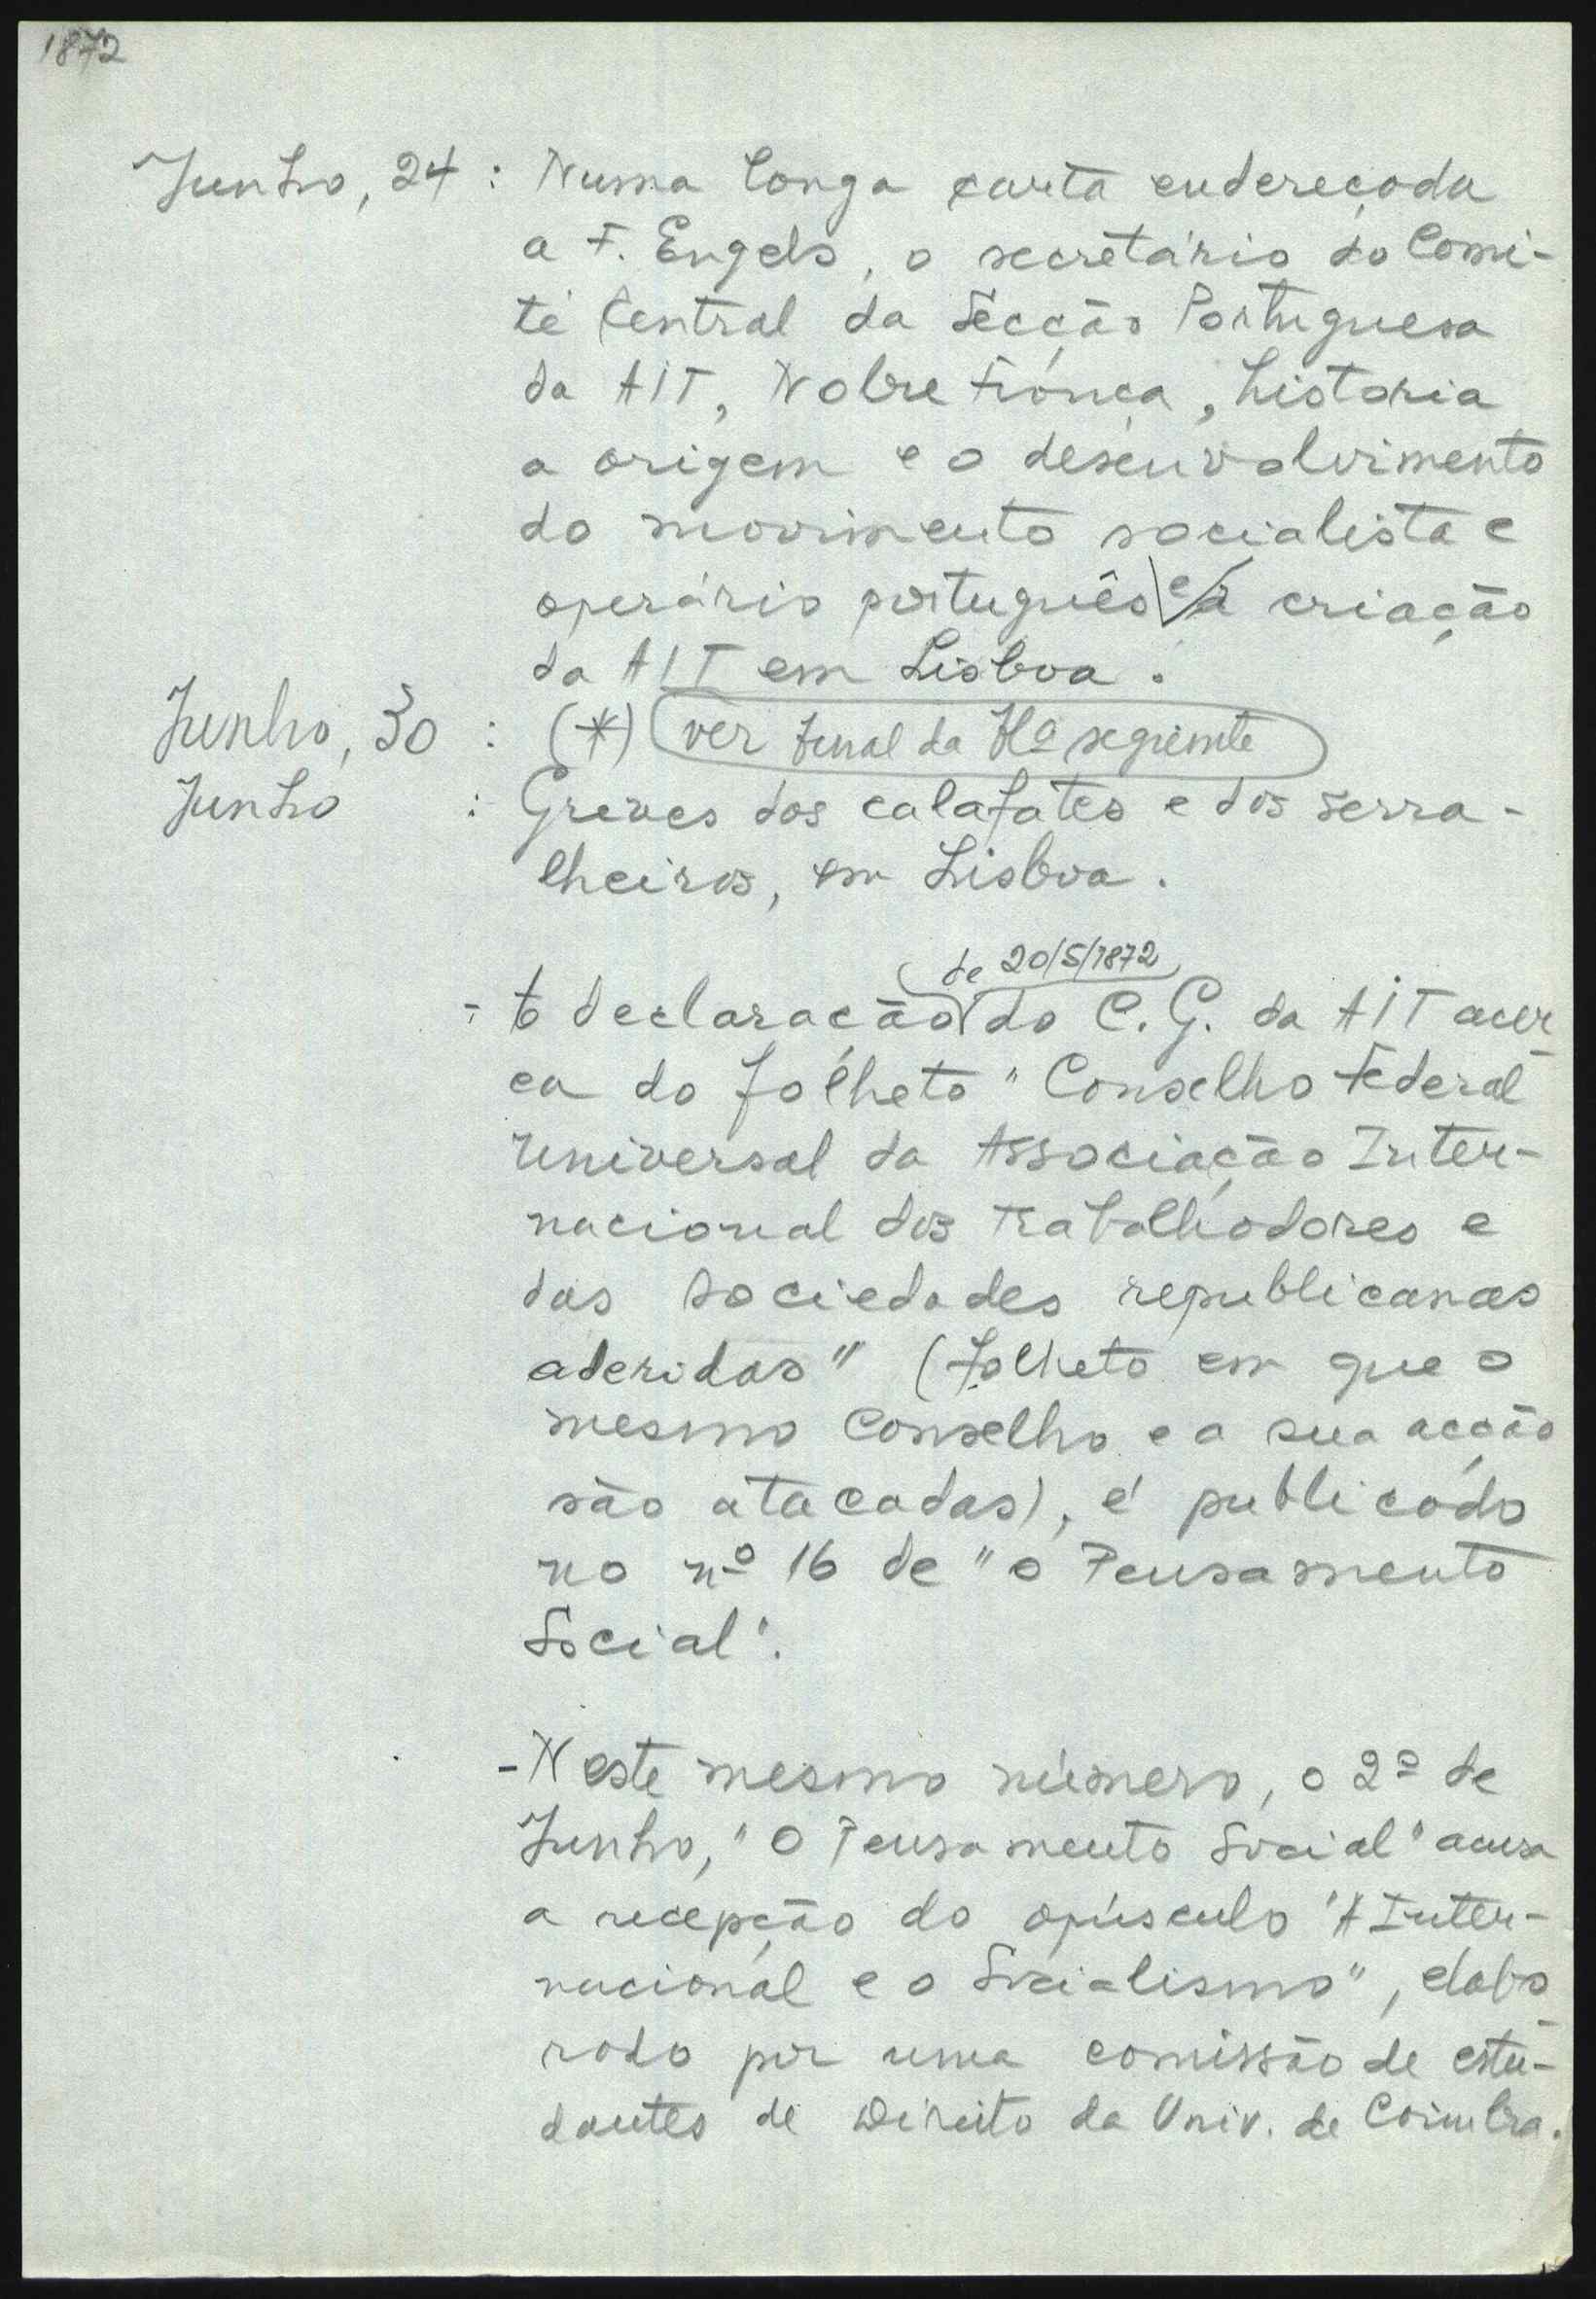 1872
Junho, 24 : Numa longa carta endereçada
a F. Engels, o secretário do Comi-
té Central da Secção Portuguesa
da AIT, Nobre França, historia
a origem e o desenvolvimento
do movimento socialista e
operário português e a criação
da AIT em Lisboa.
Junho, 30 : (*) ver final da Hª seguinte
Junho : Greves dos calafates e dos serra-
lheiros, em Lisboa.
de 20/5/1872
- A declaração do C. G. da AIT acer-
ca do folheto "Conselho Federal
Universal da Associação Inter-
nacional dos Trabalhadores e
das sociedades republicanas
aderidas" (folheto em que o
mesmo Conselho e a sua acção
são atacadas), é publicado
no nº 16 de "o Pensamento
Social".
- Neste mesmo número, o 2º de
Junho, "O Pensamento Social" acusa
a recepção do opúsculo "A Inter-
nacional e o Socialismo", elabo-
rado por uma comissão de estu-
dantes de Direito da Univ. de Coimbra.